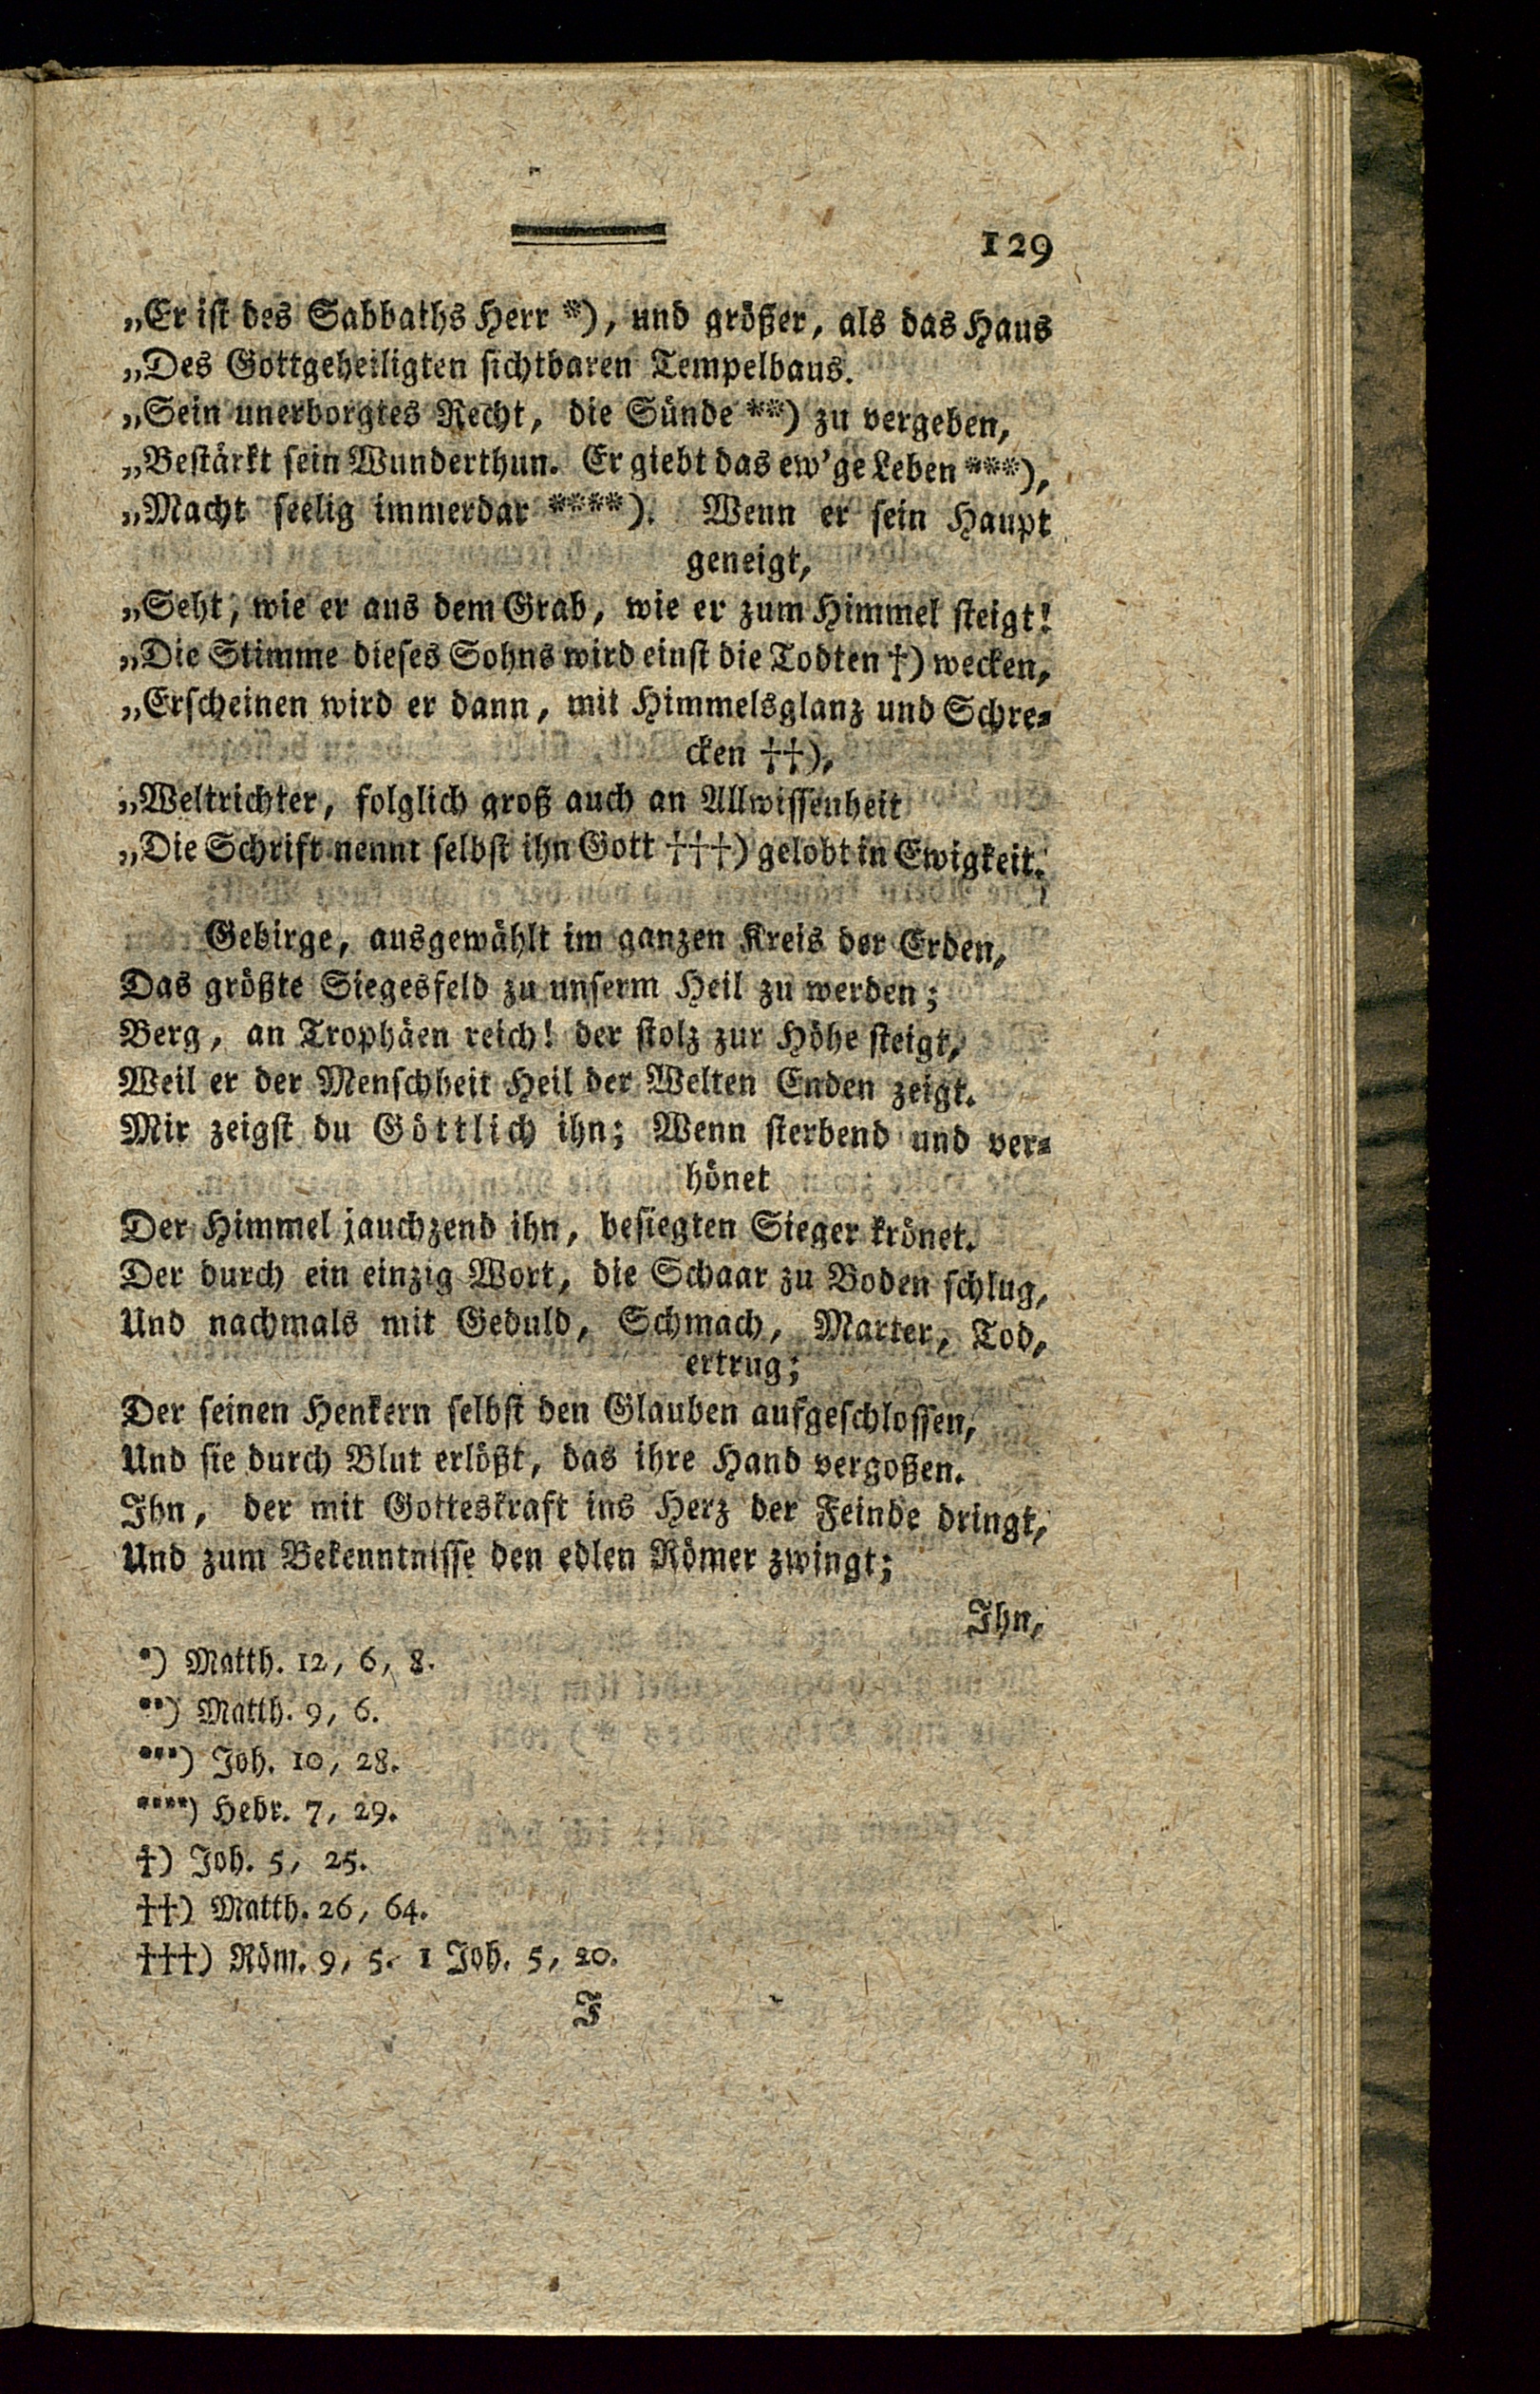 129
„Er ist des Sabbaths Herr *), und größer, als das Haus
„Des Gottgeheiligten sichtbaren Tempelbaus.
„Sein unerborgtes Recht, die Sünde **) zu vergeben,
„Bestärkt sein Wunderthun. Er giebt das ew'ge Leben ***),
„Macht seelig immerdar ****). Wenn er sein Haupt
geneigt,
„Seht, wie er aus dem Grab, wie er zum Himmel steigt!
„Die Stimme dieses Sohns wird einst die Todten †) wecken,
„Erscheinen wird er dann, mit Himmelsglanz und Schre-
cken ††),
„Weltrichter, folglich groß auch an Allwissenheit
„Die Schrift nennt selbst ihn Gott †††) gelobt in Ewigkeit.
Gebirge, ausgewählt im ganzen Kreis der Erden,
Das größte Siegesfeld zu unserm Heil zu werden;
Berg, an Trophäen reich! der stolz zur Höhe steigt,
Weil er der Menschheit Heil der Welten Enden zeigt.
Mir zeigst du Göttlich ihn; Wenn sterbend und ver-
hönet
Der Himmel jauchzend ihn, besiegten Sieger krönet.
Der durch ein einzig Wort, die Schaar zu Boden schlug,
Und nachmals mit Geduld, Schmach, Marter, Tod,
ertrug;
Der seinen Henkern selbst den Glauben aufgeschlossen,
Und sie durch Blut erlößt, das ihre Hand vergoßen.
Ihn, der mit Gotteskraft ins Herz der Feinde dringt,
Und zum Bekenntnisse den edlen Römer zwingt;
Ihn,
*) Matth. 12, 6, 8.
**) Matth. 9, 6.
***) Joh. 10, 28.
****) Hebr. 7, 29.
†) Joh. 5, 25.
††) Matth. 26, 64.
†††) Röm. 9, 5. 1 Joh. 5, 20.
J